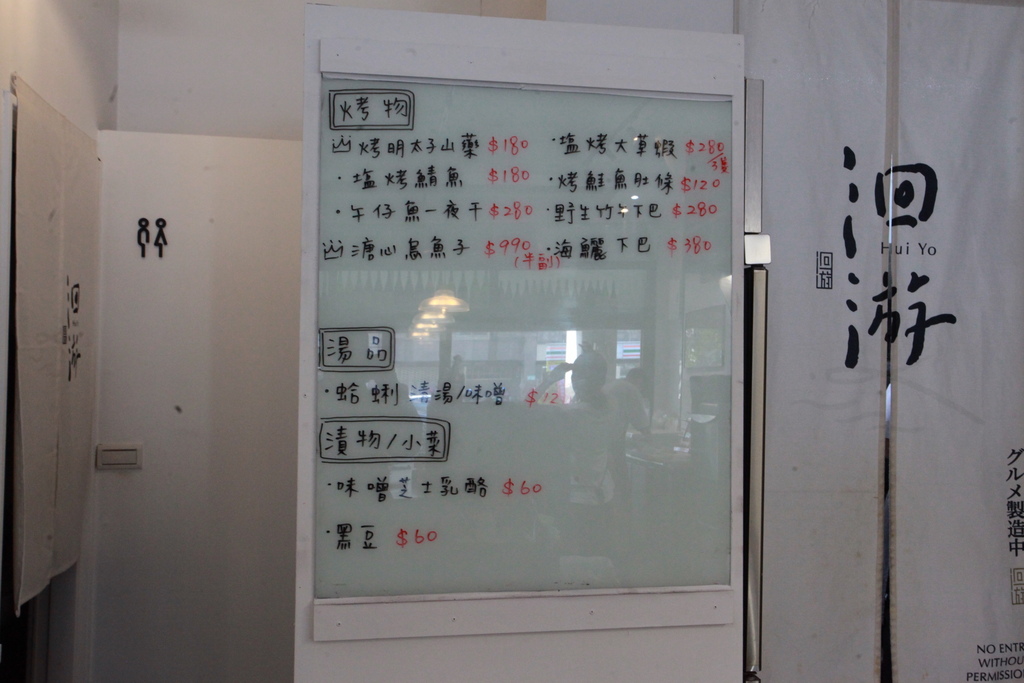 烤物
烤明太子山藥 $180
・塩烤大草蝦 $280
/3隻
・塩烤鯖魚 $180
・烤鮭魚肚條 $120
・午仔魚一夜干 $280
・野生竹午下巴 $280
溏心烏魚子 $990
(半副)
・海鱺下巴 $380
湯品
・蛤蜊清湯/味噌 $12
漬物/小菜
・味噌芝士乳酪 $60
・黑豆 $60
洄游
Hui Yo
洄游
洄游
グルメ製造中
NO ENTR
WITHOU
PERMISSIO